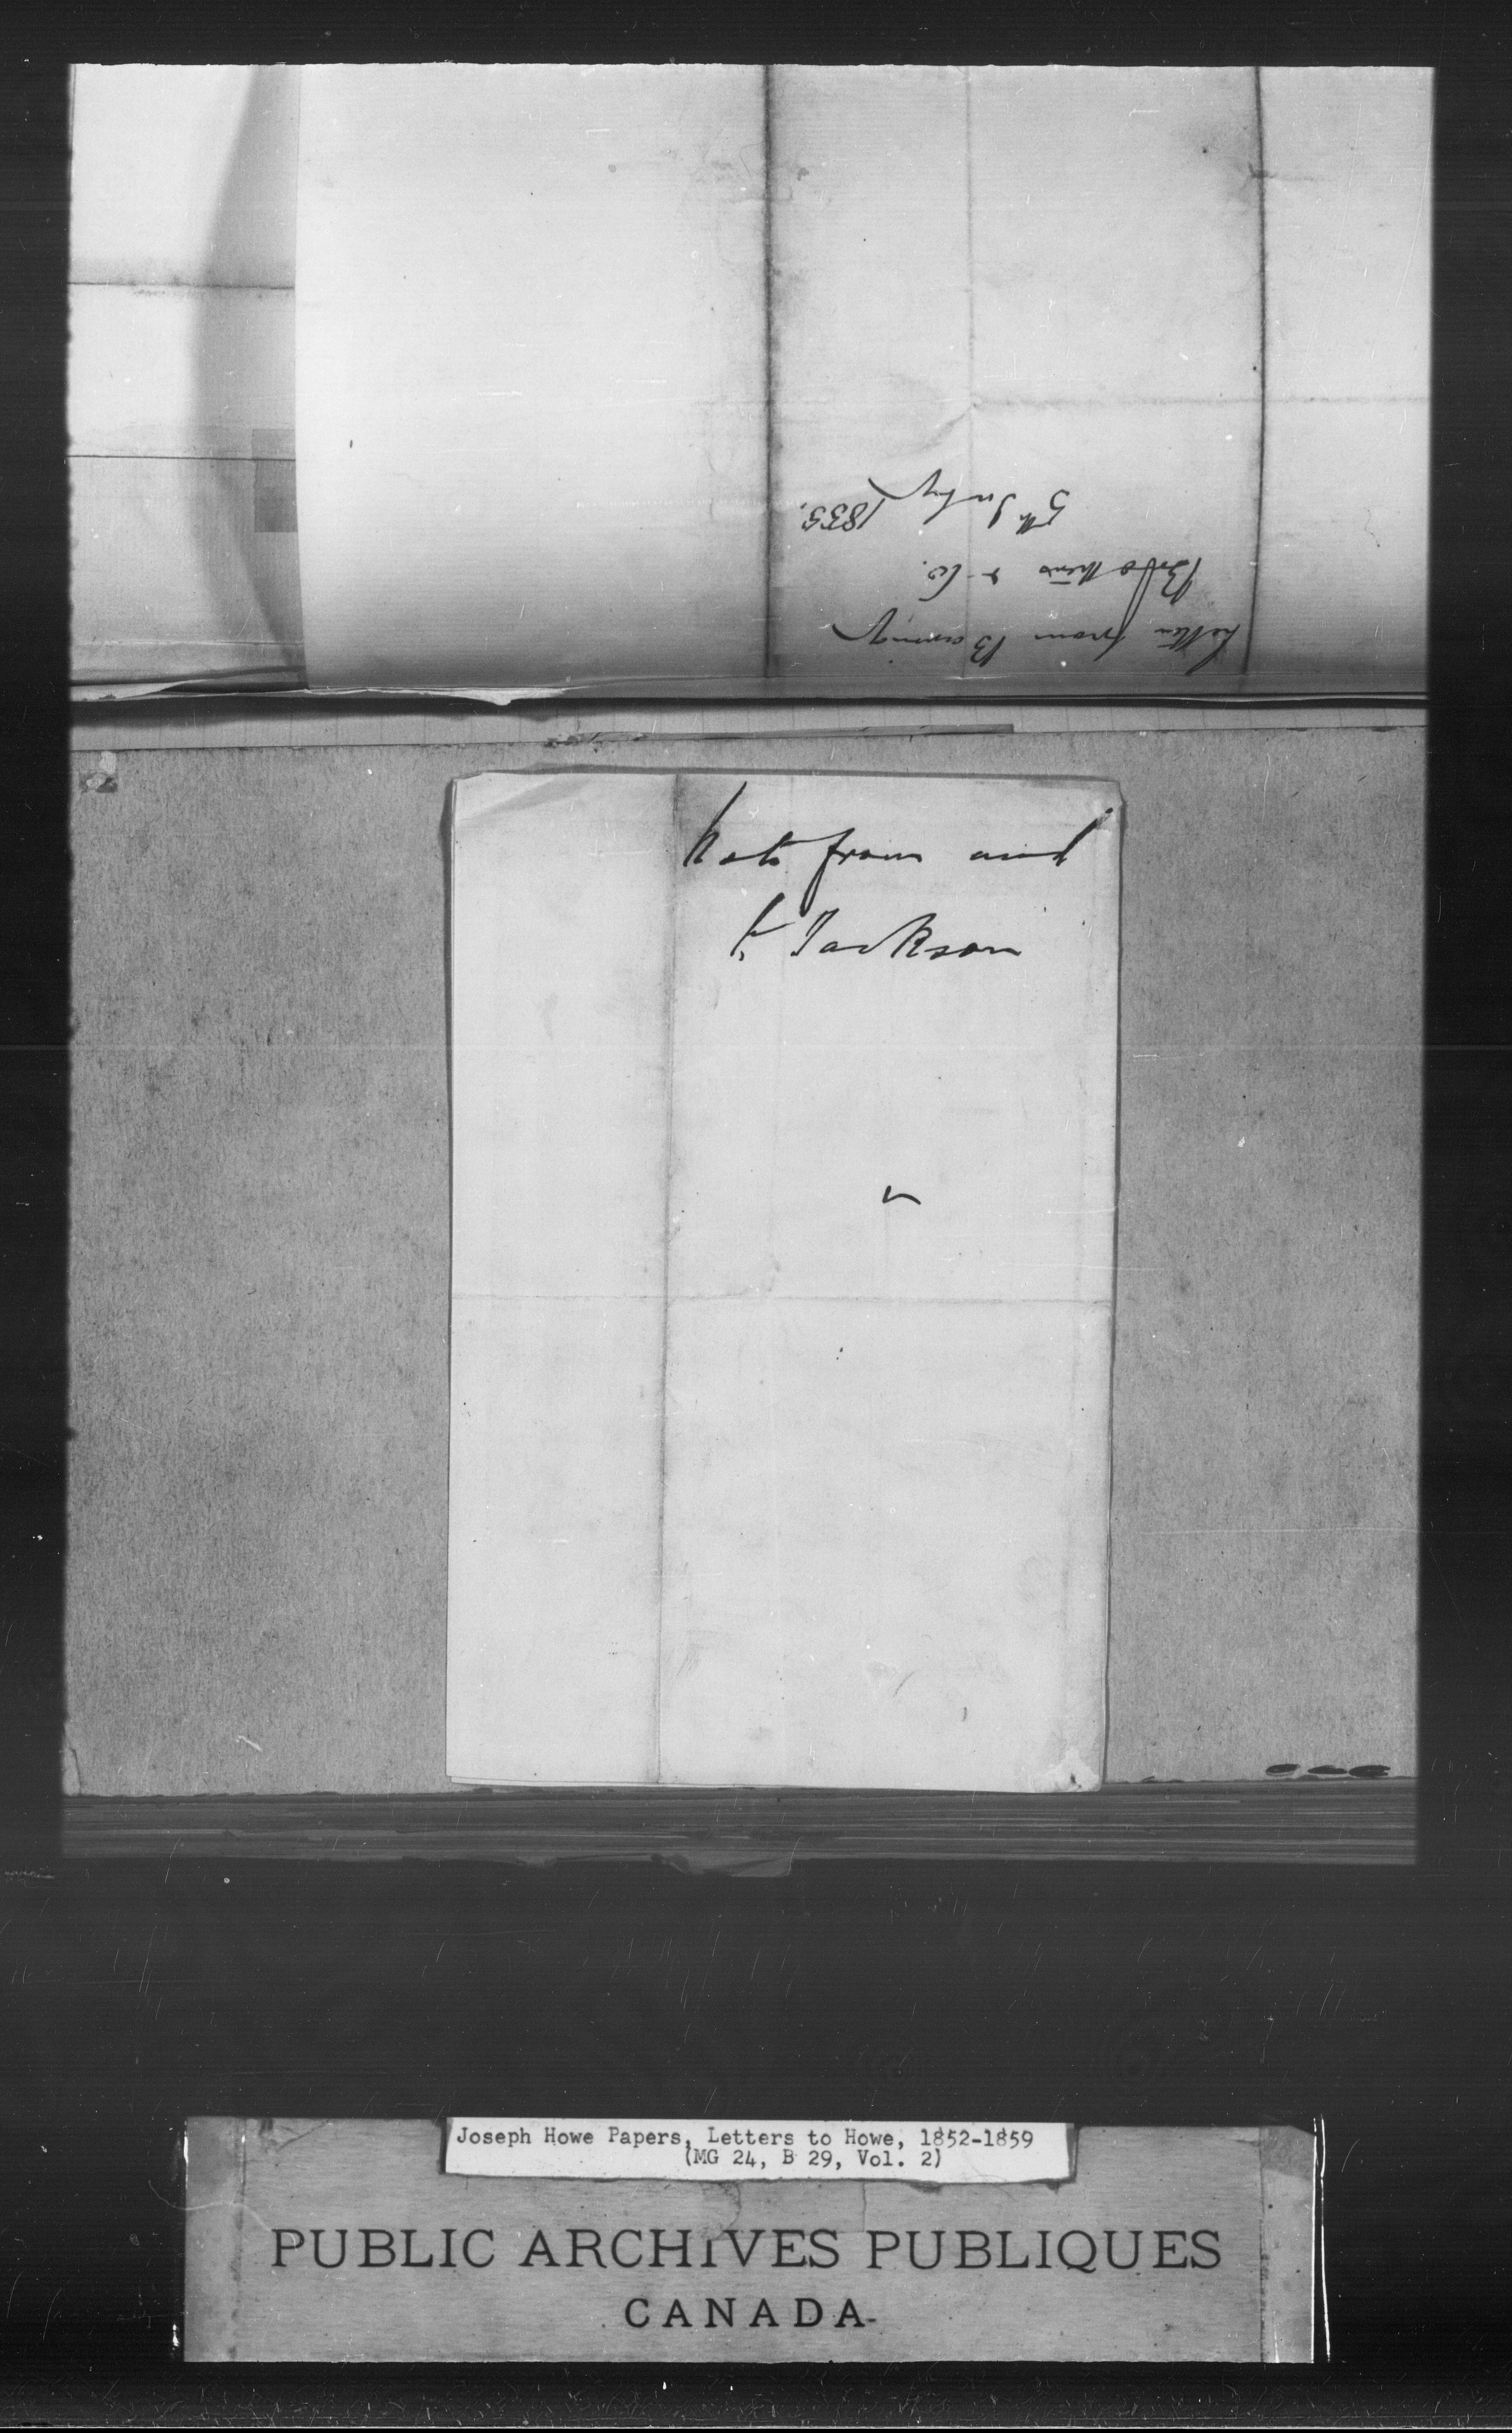 Letter from Baring
Brothers & Co.
5th July 1855.
Note from and
to Jackson
Joseph Howe Papers, Letters to Howe, 1852-1859
(MG 24, B 29, Vol. 2)
PUBLIC ARCHIVES PUBLIQUES
CANADA